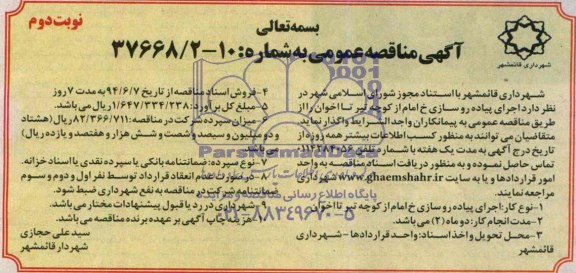 بسمه‌تعالی
نوبت دوم
آگهی مناقصه عمومی به شماره: ۱۰-۳۷۶۶۸/۲
شهرداری قائمشهر
شهرداری قائمشهر با استناد مجوز شورای اسلامی شهر در
نظر دارد اجرای پیاده رو سازی خ امام از کوچه تیر تا اخوان را از
طریق مناقصه عمومی به پیمانکاران واجد شرایط واگذار نماید.
متقاضیان می توانند به منظور کسب اطلاعات بیشتر همه روزه از
تاریخ درج آگهی به مدت یک هفته با شماره تلفن
تماس حاصل نموده و به منظور دریافت اسناد مناقصه به واحد
امور قراردادها و یا به سایت www.ghaemshahr.ir شهرداری
مراجعه نمایند.
۱-نوع کار: اجرای پیاده رو سازی خ امام از کوچه تیر تا اخوان
۲-مدت انجام کار: دو ماه (۲) می باشد.
۳-محل تحویل و اخذ اسناد: واحد قراردادها - شهرداری
۴- فروش اسناد مناقصه از تاریخ ۹۴/۶/۷ به مدت ۷ روز
۵- مبلغ کل برآورد: ۱/۶۴۷/۳۳۴/۲۳۸ ریال می باشد.
۶- میزان سپرده شرکت در مناقصه: ۸۲/۳۶۶/۷۱۱ ریال (هشتاد
و دو میلیون و سیصد و شصت و شش هزار و هفتصد و یازده ریال)
می باشد
۷- نوع سپرده: ضمانتنامه بانکی یا سپرده نقدی یا اسناد خزانه.
۸- در صورت عدم انعقاد قرارداد توسط نفر اول و دوم و سوم
ضمانتنامه شرکت در مناقصه به نفع شهرداری ضبط شود.
۹- شهرداری در رد یا قبول پیشنهادات مختار می باشد.
هزینه چاپ آگهی بر عهده برنده مناقصه می باشد.
سید علی حجازی
شهردار قائمشهر
ParsNamadData
پایگاه اطلاع رسانی مناقصه و مزایده
۰۲۱-۸۸۳۴۹۶۷۰-۵